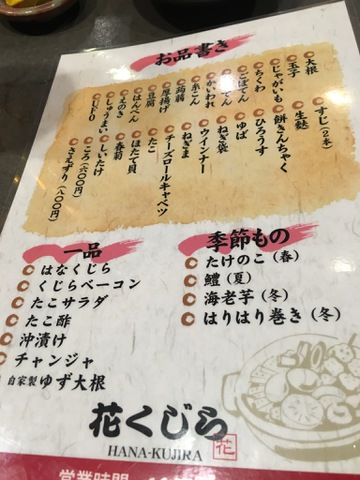 お品書き
大根
玉子
じゃがいも
ちくわ
ごぼてん
かいわれ
糸こん
蒟蒻
厚揚げ
豆腐
はんぺん
えのき
しゅうまい
UFO
すじ(2本)
生麩
餅きんちゃく
ひろうす
ゆば
ねぎ袋
ウインナー
チーズロールキャベツ
たこ
ねぎま
ほたて貝
春菊
しいたけ
ころ(六〇〇円)
さえずり(八〇〇円)
一品
はなくじら
くじらベーコン
たこサラダ
たこ酢
沖漬け
チャンジャ
自家製ゆず大根
季節もの
たけのこ(春)
鱧(夏)
海老芋(冬)
はりはり巻き(冬)
花くじら
HANA-KUJIRA
花
営業時間